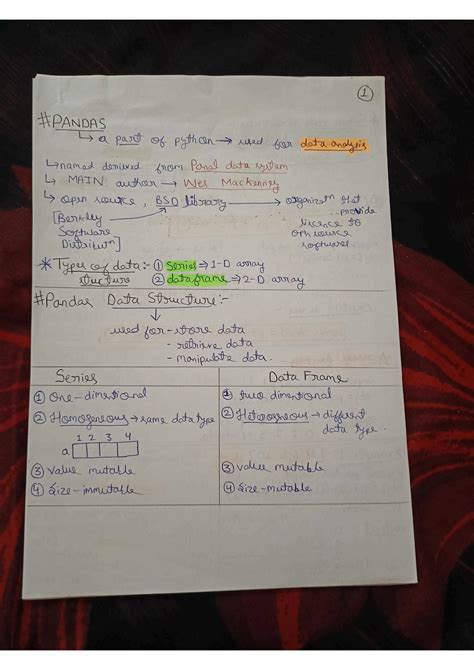 1
#PANDAS
↳ a part of python → used for data analysis
↳ named derived from Panal data system
↳ MAIN author → Wes Mackenney
↳ open source, BSD library → organizatn that
provide
[Berkley
Software
Distributn]
licence to
opn source
softwares.
* Types of data:- ① Series ⇒ 1-D array
structure ② dataframe ⇒ 2-D array
#Pandas Data Structure:-
used for - store data
- retrieve data
- manipulate data.
Series
① One-dimentional
② Homogeneous → same data type
1 2 3 4
a
③ Value mutable
④ Size-immutable
Data Frame
① two dimentional
② Heterogneous → different
data type.
③ value mutable
④ Size-mutable